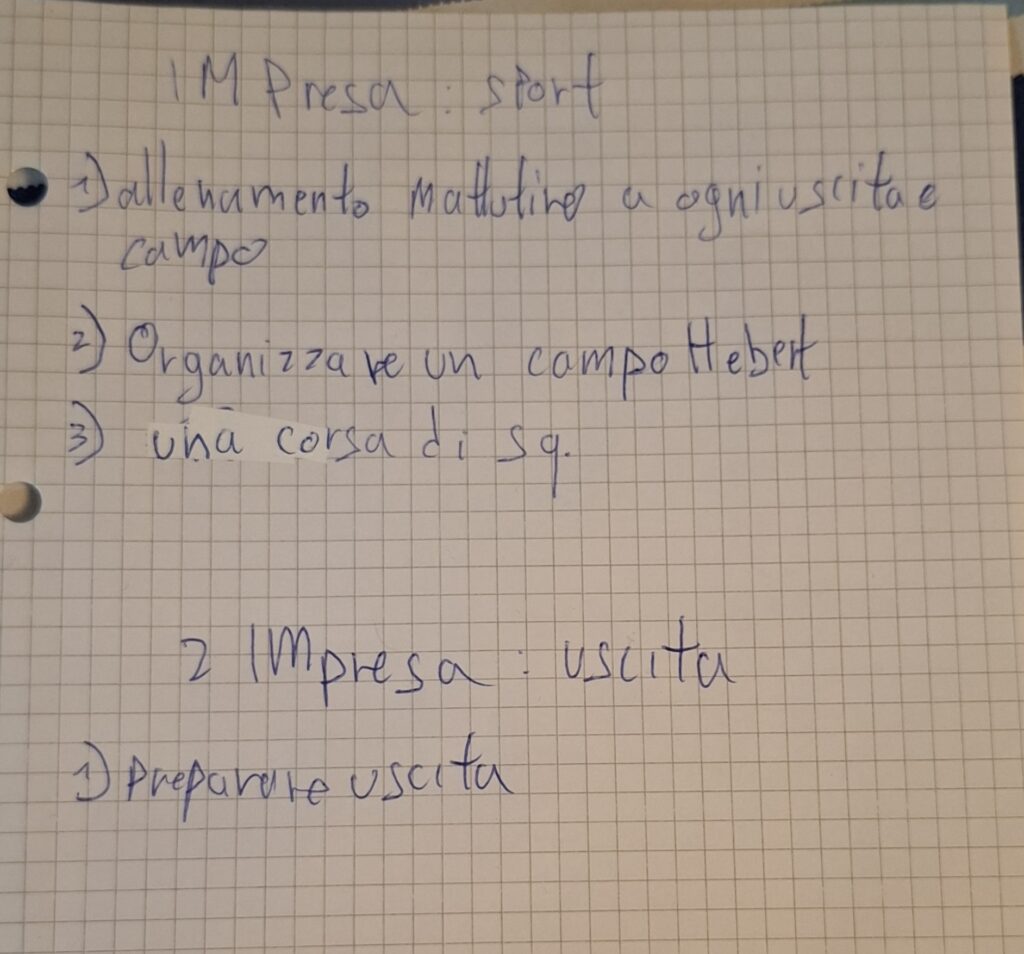 IMPresa: sport
1) allenamento mattutino a ogni uscita e
campo
2) Organizzare un campo Hebert
3) una corsa di sq.
2 IMpresa: uscita
1) Preparare uscita